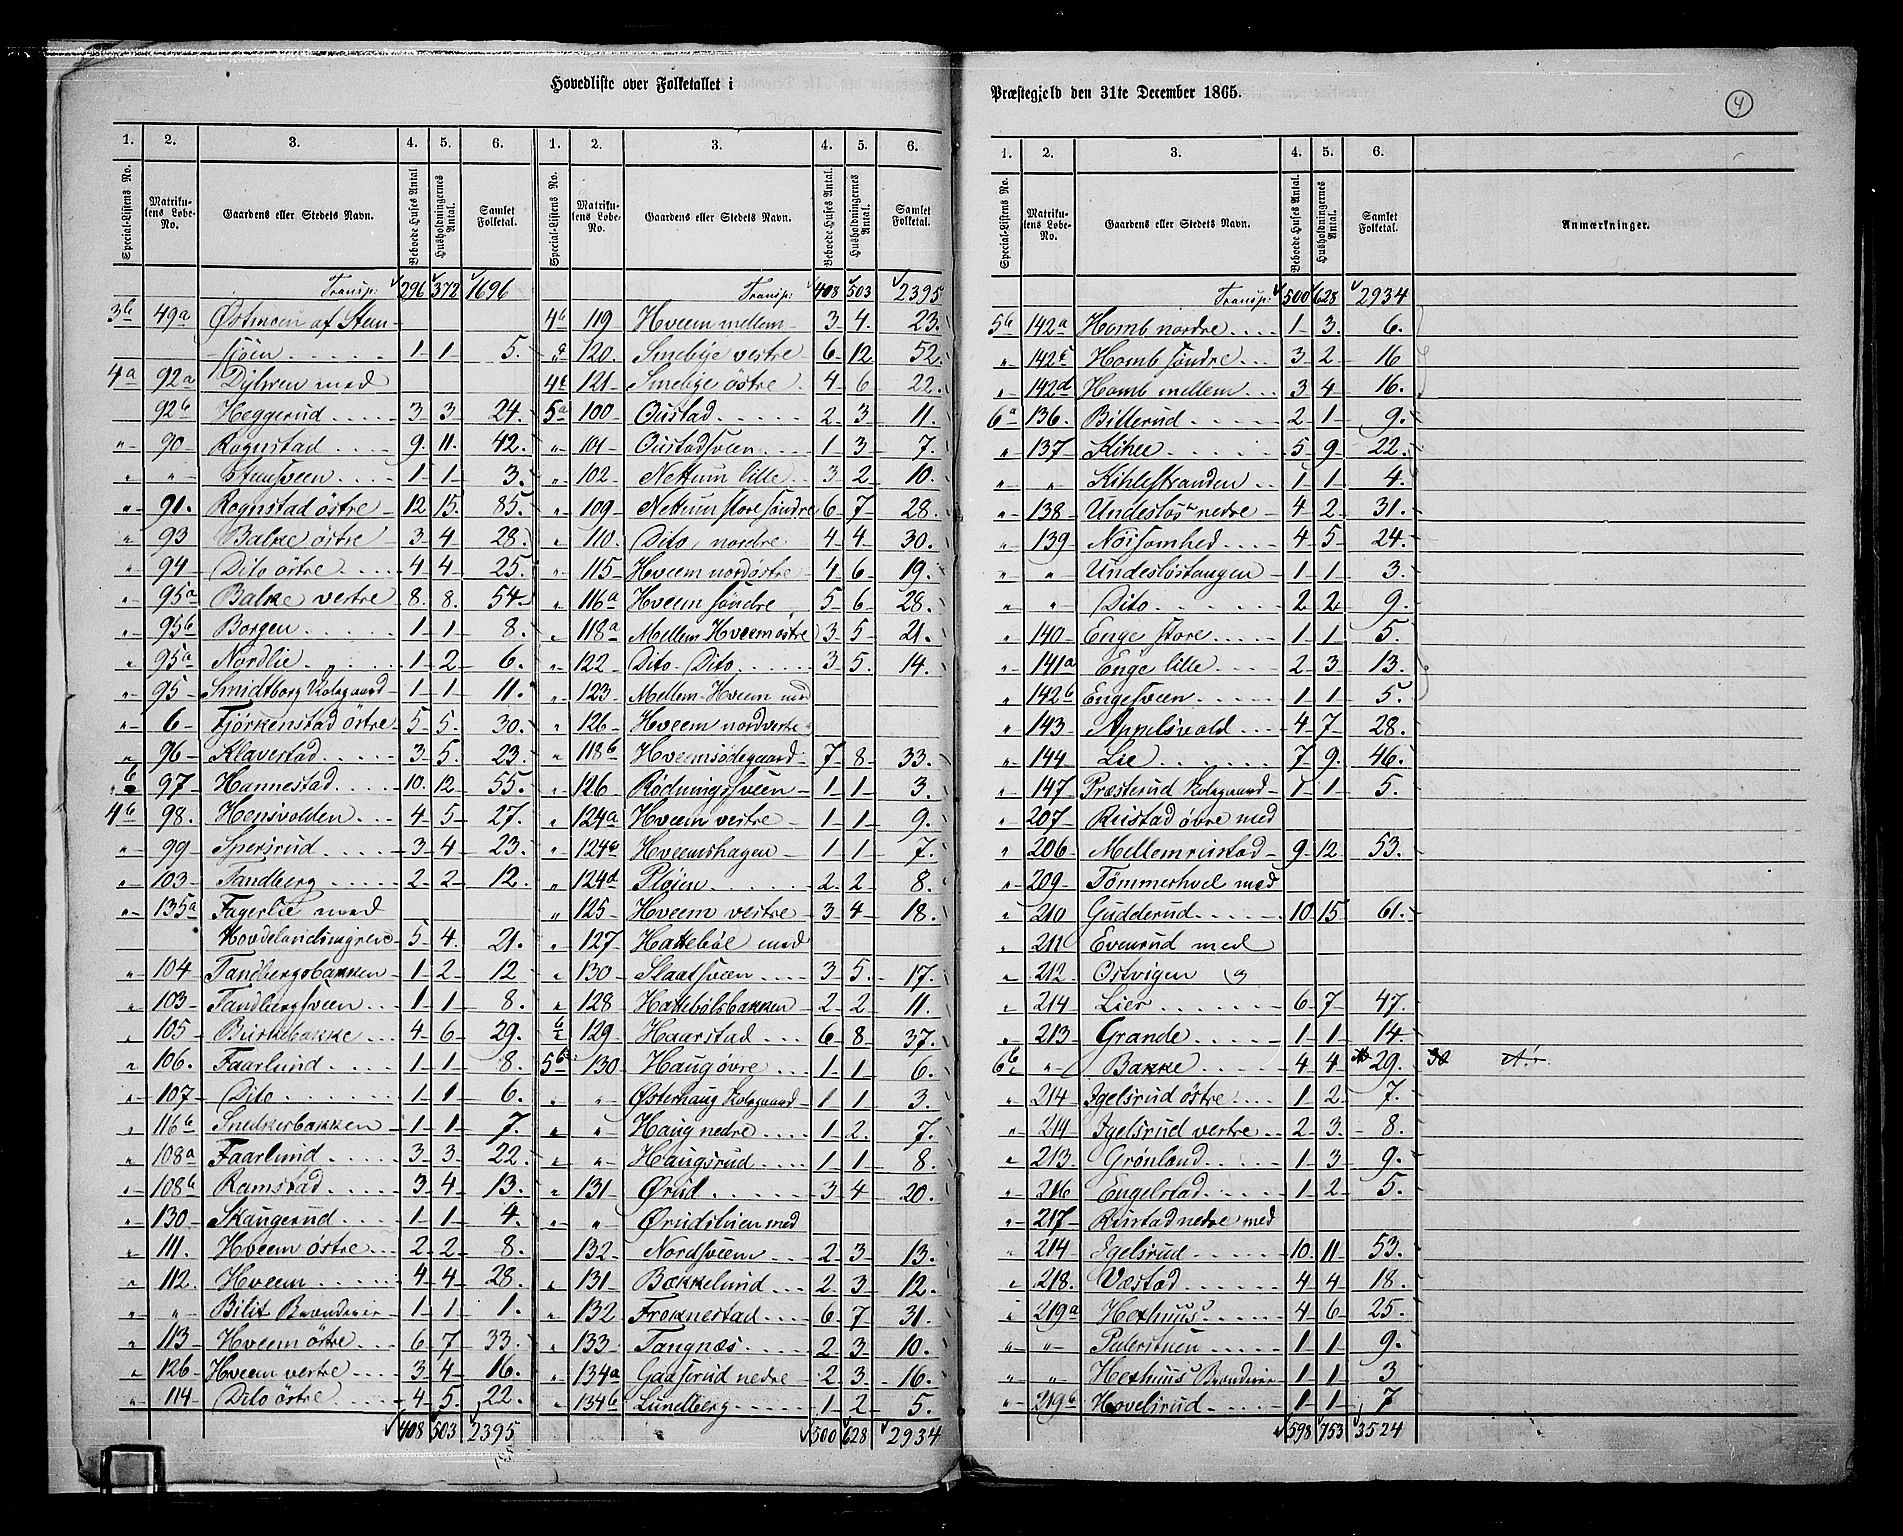 Hovedliste over Folketallet i
1. 2. 3. 4. 5. 6. 1. 2. 3. 4. 5. 6.
Special-Listens No. Matrikulens Løbe-No. Gaardens eller Stedets Navn. Beboede Huses Antal Husholdningernes Antal. Samlet Folketal. Special-Listens No. Matrikulens Løbe-No. Gaardens eller Stedets Navn. Beboede Huses Antal. Husholdningernes Antal. Samlet Folketal.
Transp: 296 372 1696
3b 49a Østmoen af Stensjöen 1 1 5.
4a 92a Dyhren med
92b Heggerud 3 3 24.
" 90 Rognstad 9. 11. 42.
" " Stensveen 1 1 3.
" 91. Rognstad östre 12 15. 85.
" 93 Balke östre 3 4 28.
" 94 Dito östre 4 4 25.
" 95a Balke vestre 8. 8. 54.
" 95b Borgen 1 1 8.
" 95a Nordlie 1 2 6.
" 95 Smidtborg Kolsgaard 1 1 11.
" 6 Fjørkenstad östre 5 5. 30.
" 96 Klavestad 3 5. 23.
" 97 Hannestad 10. 12 55.
4b 98. Hensvolden 4 5 27.
" 99 Spersrud 3 4 23.
" 103 Tandberg 2 2 12.
" 135a Fagerlie med
Hovdelandseigrene 5 4. 21.
" 104 Tandbergsbakken 1 2 12
" 103 Tandbergsveen 1 1 8.
" 105 Buskebakke 4 6 29.
" 106. Faarlund 1 1 8.
" 107 Dito 1 1 6.
" 116b Snekkerbakken 1 1 7.
" 108a Faarlund 3 3 22.
" 108b Ramstad 3 4 13.
" 130 Skaugerud 1 1 4.
" 111. Hveem östre 2 2 8.
" 112. Hveem 4 4 28.
" " Bilit Brænderie 1 1 1.
" 113 Hveem östre 6 7 33.
" 126 Hveem vestre 3 4 16.
" 114 Dito östre 4 5 22.
408 503 2395
Transp: 408 503 2395
4b 119 Hveem mellem 3 4. 23.
" 120. Smebye vestre 6 12 52.
4c 121 Smebye östre 4 6 22.
5a 100 Oustad 2 3 11.
" 101 Oustadsveen 1 3 7.
" 102 Nettum lille 3 2 10.
" 109 Nettum store søndre 6 7 28.
" 110. Dito, nordre 4 4 30.
" 115 Hveem nordöstre 4 6 19.
" 116a Hveem søndre 5 6 28.
" 118a Mellem Hveem östre 3 5 21.
" 122 Dito Dito 3 5. 14.
" 123 Mellem-Hveem med
" 126 Hveem nordvestre
" 118b Hveemsödegaard 7 8 33.
" 126 Rödningssveen 1 1 3.
" 124a Hveem vestre 1 1 9.
" 124c Hveemshagen 1 1 7.
" 124d Pløien 2 2 8.
" 125 Hveem vestre 3 4 18.
" 127 Hakkeböl med
" 130 Slaatsveen 3 5. 17.
" 128 Hakkebölsbakken 2 2 11.
129 Haarstad 6 8 37.
5b 130 Haug övre 1 1 6.
" " Østerhaug Kolsgaard 1 1 3.
" " Haug nedre 1 2. 7.
" " Haugsrud 1 1 8.
" 131 Ørud 3 4 20.
" " Ørudstuen med
132 Nordsveen 2 3 13.
" 131 Bækkelund 2 3 12.
" 132 Froknestad 6 7 31.
" 133 Tangnæs 2 3 10.
" 134a Gaasrud nedre 2 3. 16.
" 134b Lundberg 1 2 5.
500 628 2934
Præstegjeld den 31te December 1865.
4
1. 2. 3. 4. 5. 6.
Special-Listens No. Matrikulens Løbe-No. Gaardens eller Stedets Navn. Beboede Huses Antal. Husholdningernes Antal. Samlet Folketal. Anmærkninger.
Transp: 500 628 2934
5b 142a Homb nordre 1 3. 6.
" 142c Homb söndre 3 2 16
" 142d Homb mellem 3 4 16.
6a 136. Bilterud 2 1 9.
" 137 Kihle 5 9 22.
" " Kihlestranden 1 1 4.
" 138 Undeslös nedre 4 2 31.
" 139 Nöisomhed 4 5 24.
" " Undeslöstangen 1 1 3.
" " Dito 2 2 9.
" 140 Enge store 1 1 5.
" 141a Enge lille 2 3 13.
" 142b Engesveen 1 1 5.
" 143 Appelsvold 4 7 28.
" 144 Lie 7 9. 46.
" 147 Præsterud Kolsgaard 1 1 5.
" 207. Reistad övre med
" 206 Mellemreistad 9 12. 53.
" 209 Tömmerhoel med
" 210 Gudderud 10 15 61.
" 211 Evenrud med
" 212 Ostvigen og
" 214 Lier 6 7 47.
" 213 Grande 1 1 14.
6b " Bakke 4 4 29.
" 214 Igelsrud östre 1 2 7.
" 214 Igelsrud vestre 2 3. 8.
" 213. Grønland 1 3 9.
" 216 Engelstad 1 2 5.
" 217 Reistad nedre med
" 214 Igelsrud 10. 11 53.
" 218. Vøstad 4 4 18.
" 219a Hexhuus 4 6 25.
" " Palerstuen 1 1 9.
" " Hexhuus Brænderie 1 1 3
" 219b Hovelsrud 1 1 7
598 753 3524